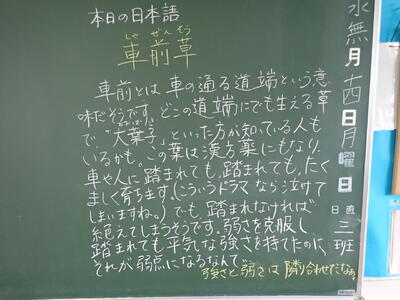 本日の日本語
しゃ ぜん そう
車前草
車前とは 車の通る道端という意
味だそうです。どこの道端にでも生える草
おおばこ
で、"大葉子"といった方が知っている人も
いるかも。この葉は漢方薬にもなり、
車や人に踏まれても、踏まれても、たく
ましく育ちます。(こういうドラマなら泣けて
しまいますね。)でも、踏まれなければ
絶えてしまうそうです。弱さを克服し
踏まれても平気な強さを持てたのに
それが弱点になるなんて。
強さと弱さは隣り合わせだなぁ
水無月十四日月曜日
日直
三班